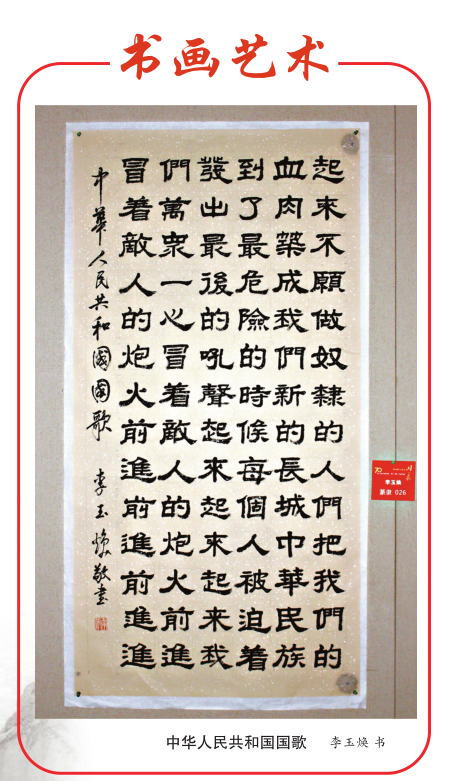 书画艺术
起來不願做奴隸的人們把我們的
血肉築成我們新的長城中華民族
到了最危險的時候每個人被迫着
發出最後的吼聲起來起來起來我
們萬衆一心冒着敵人的炮火前進
冒着敵人的炮火前進前進前進進
中華人民共和國國歌 李玉焕敬書
70
李玉焕
篆隶 026
中华人民共和国国歌 李玉焕 书